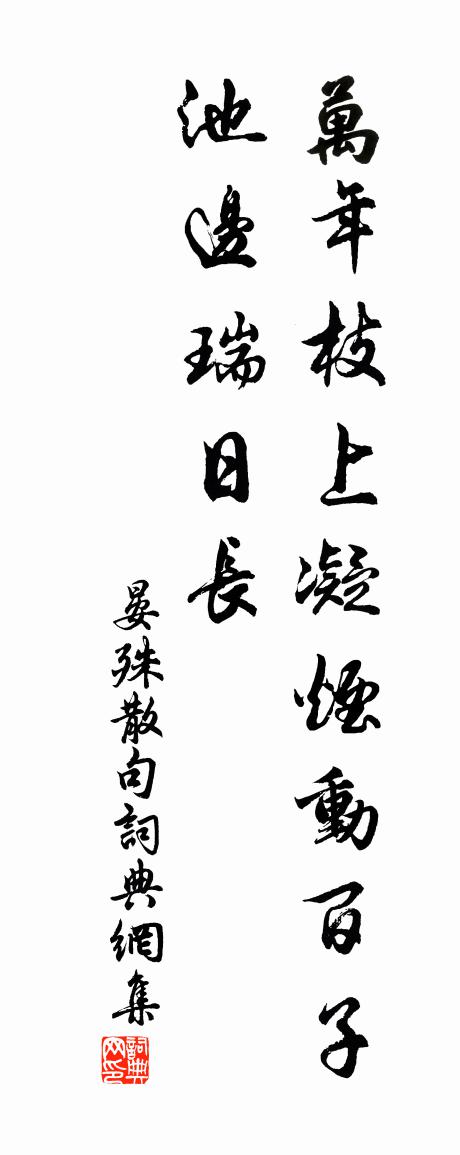 萬年枝上凝煙動百子
池邊瑞日長
晏殊散句詞典網集
詞典网印